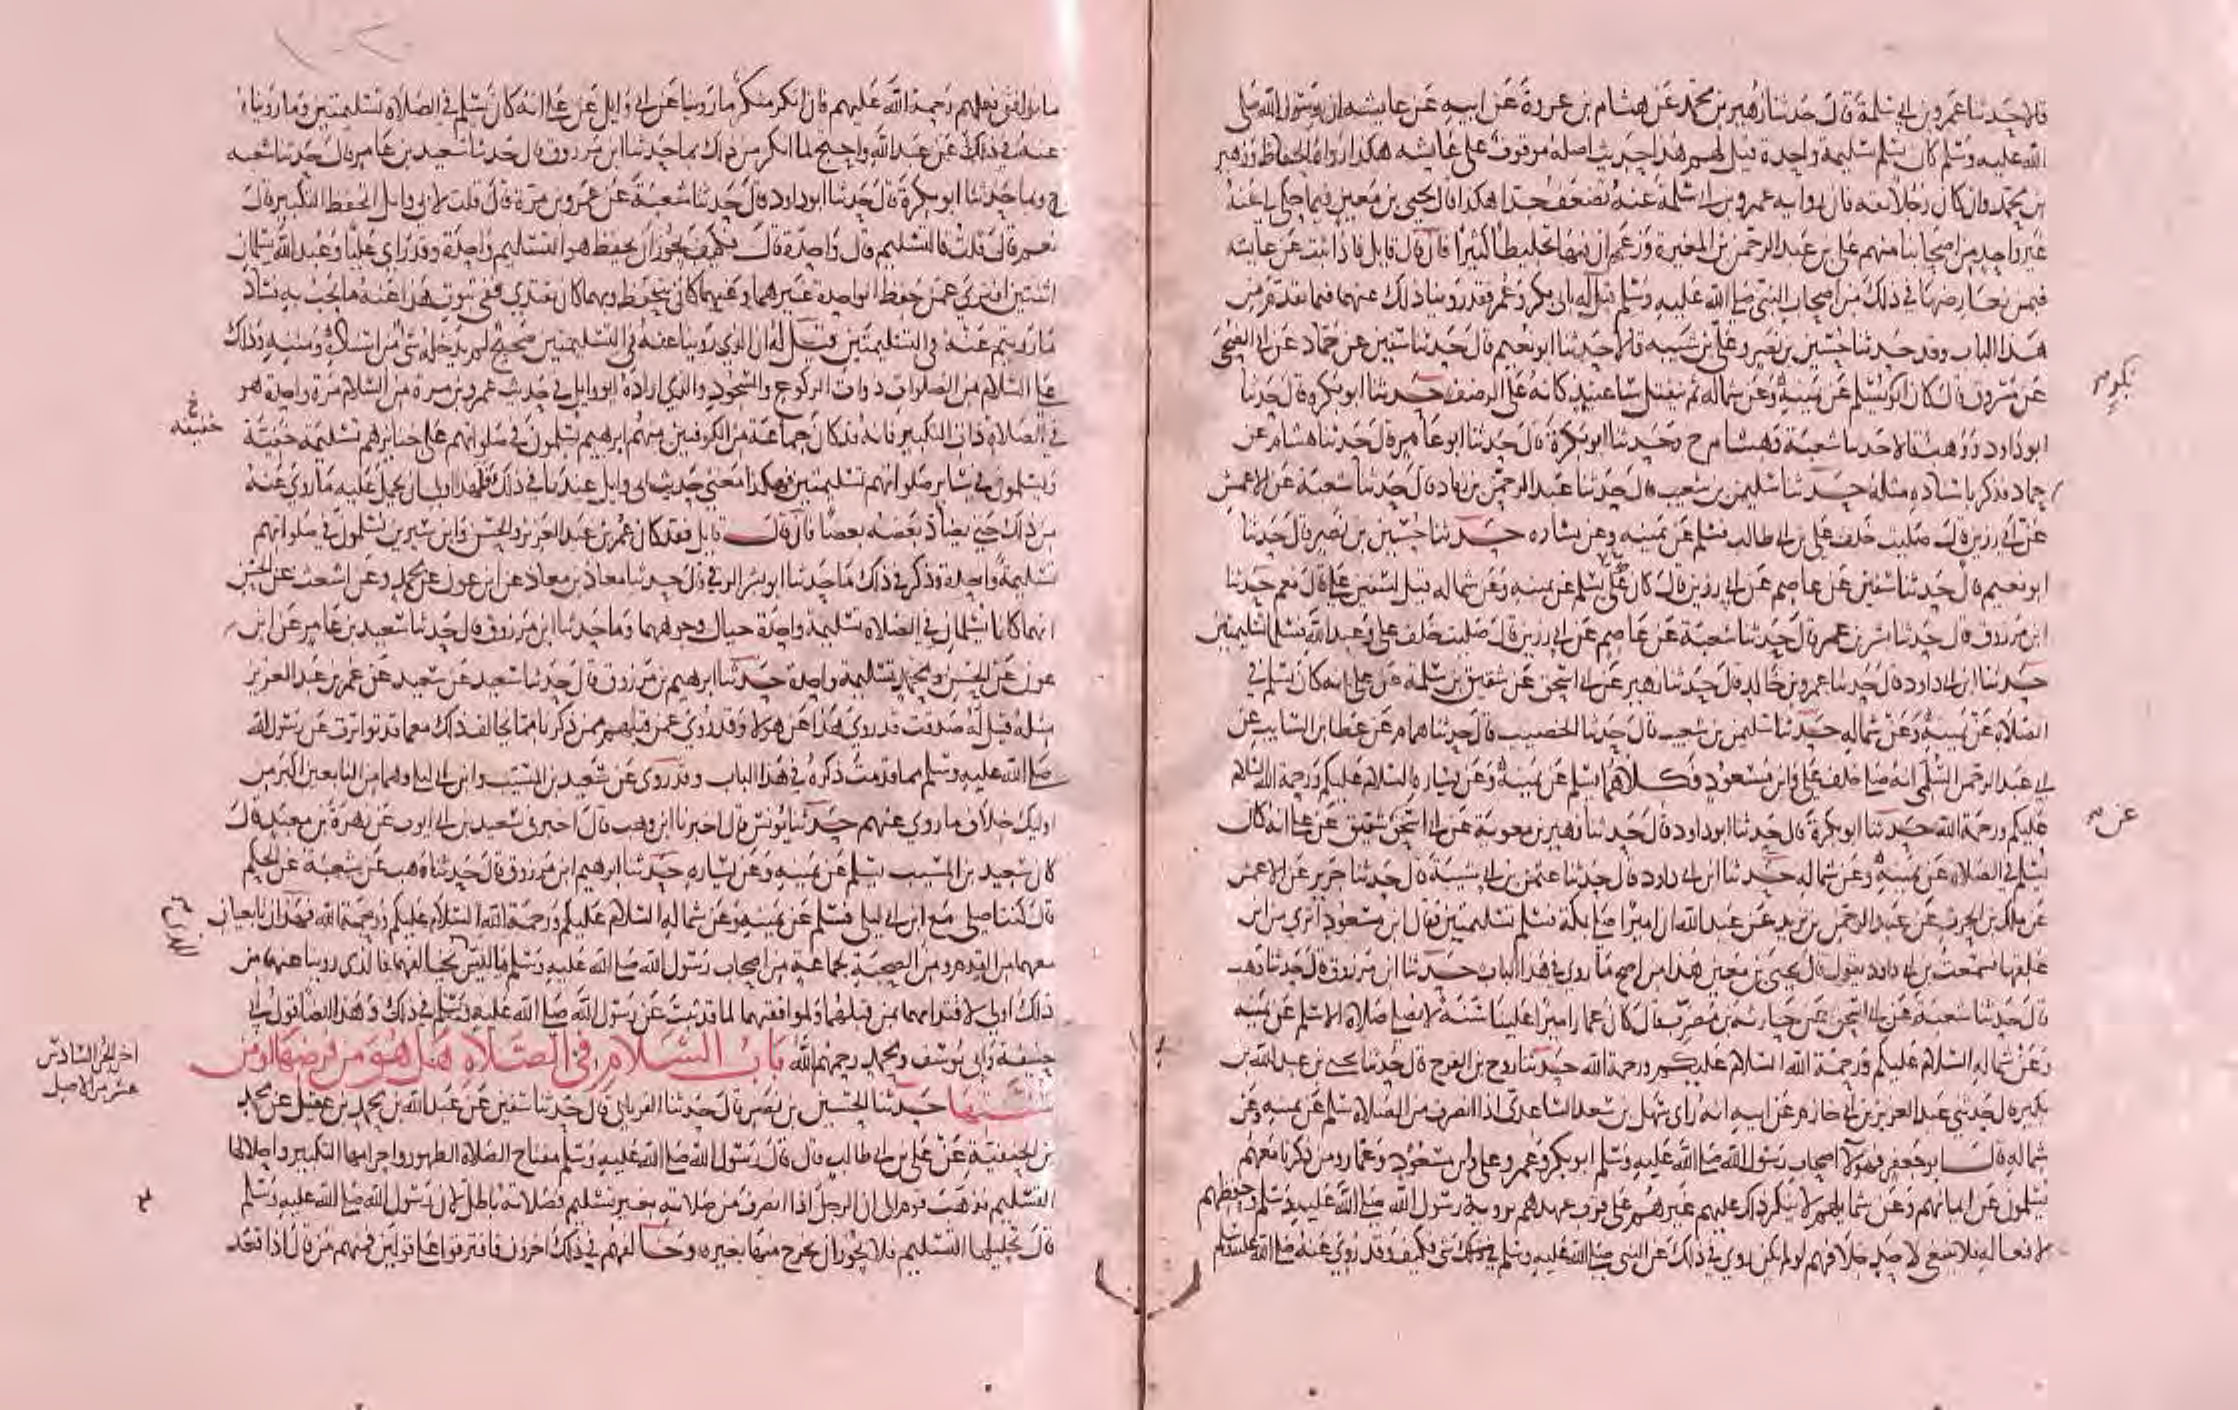 قالا حدثنا عمرو بن ابي سلمة قال حدثنا زهير بن محمد عن هشام بن عروة عن ابيه عن عايشه ان رسول الله صلى
الله عليه وسلم كان يسلم تسليمة واحدة قيل لهم هذا حديث اصله موقوف على عايشه هكذا رواه الحفاظ وزهير
بن محمد وان كان رجلا ثقه فان رواية عمرو بن ابي سلمة عنه تضعف جدا هكذا قال يحيى بن معين فيما حكى لي عنه
غير واحد من اصحابنا منهم علي بن عبد الرحمن بن المغيرة وزعم ان فيها تخليطا كثيرا فان قال قايل فاذا ثبت عن عايشه
فبمن يعارضها في ذلك من اصحاب النبي صلى الله عليه وسلم قيل له بابي بكر وعمر فقد روينا ذلك عنهما فيما تقدم من
هذا الباب وقد حدثنا حسين بن نصر وعلي بن شيبه قالا حدثنا ابو نعيم قال حدثنا سفين عن حماد عن ابي الضحى
عن مسروق قال كان ابو بكر يسلم عن يمينه وعن شماله ثم ينفتل ساعتيذ كانه على الرضف حدثنا ابو بكره قال حدثنا
ابو داود ووهب قالا حدثنا شعبة وهشام ح وحدثنا ابو بكرة قال حدثنا ابو عامر قال حدثنا هشام عن
حماد فذكر باسناده مثله حدثنا سليمن بن شعيب قال حدثنا عبد الرحمن بن زياد قال حدثنا شعبة عن الاعمش
عن ابي رزين قال صليت خلف علي بن ابي طالب فسلم عن يمينه وعن يساره حدثنا حسين بن نصر قال حدثنا
ابو نعيم قال حدثنا سفين عن عاصم عن ابي رزين قال كان علي يسلم عن يمينه وعن شماله قيل لسفين علي قال نعم حدثنا
ابن مرزوق قال حدثنا بشر بن عمر قال حدثنا شعبة عن عاصم عن ابي رزين قال صليت خلف علي وعبد الله فسلما تسليمتين
حدثنا ابن ابي داود قال حدثنا عمرو بن خالد قال حدثنا زهير عن ابي اسحق عن شقيق بن سلمة عن علي انه كان يسلم في
الصلاة عن يمينه وعن شماله حدثنا سليمن بن شعيب قال حدثنا الخصيب قال حدثنا همام عن عطا بن السايب عن
ابي عبد الرحمن السلمي انه صلى خلف علي وابن مسعود فكلاهما يسلم عن يمينه وعن يساره السلام عليكم ورحمة الله السلام
عليكم ورحمة الله حدثنا ابو بكرة قال حدثنا ابو داود قال حدثنا زهير بن معوية عن ابي اسحق عن شقيق عن علي انه كان
يسلم في الصلاة عن يمينه وعن شماله حدثنا ابن ابي داود قال حدثنا عثمن بن ابي شيبة قال حدثنا جرير عن الاعمش
عن ملك بن الحرث عن عبد الرحمن بن يزيد عن عبد الله ان اميرا صلى بمكة فسلم تسليمتين فقال ابن مسعود اترى من اين
علقها سمعت بن ابي داود يقول قال يحيى بن معين هذا من اصح ما روي في هذا الباب حدثنا ابن مرزوق قال حدثنا وهب
قال حدثنا شعبة عن ابي اسحق عن حارثه بن مضرب قال كان عمار اميرا علينا سنة لا يصلي صلاة الا سلم عن يمينه
وعن شماله السلام عليكم ورحمة الله السلام عليكم ورحمة الله حدثنا روح بن الفرج قال حدثنا يحيى بن عبد الله بن
بكير قال حدثني عبد العزيز بن ابي حازم عن ابيه انه راى سهل بن سعد الساعدي اذا انصرف من الصلاة سلم عن يمينه وعن
شماله قال ابو جعفر فهولا اصحاب رسول الله صلى الله عليه وسلم ابو بكر وعمر وعلي وابن مسعود وعمار ومن ذكرنا معهم
يسلمون عن ايمانهم وعن شمايلهم لا ينكر ذلك عليهم غيرهم على قرب عهدهم بروية رسول الله صلى الله عليه وسلم وحفظهم
لافعاله فلا ينبغي لاحد خلافهم لو لم يكن روي في ذلك عن النبي صلى الله عليه وسلم شي فكيف وقد روي عنه صلى الله عليه وسلم
عن
ما يوافق فعلهم رحمة الله عليهم فان انكر منكر ما روينا عن ابي وايل عن علي انه كان يسلم في الصلاة تسليمتين وما روينا
عنه في ذلك عن عبد الله واحتج لما انكر من ذلك بما حدثنا ابن مرزوق قال حدثنا سعيد بن عامر قال حدثنا شعبه
ح وبما حدثنا ابو بكرة قال حدثنا ابو داود قال حدثنا شعبة عن عمرو بن مرة قال قلت لابي وايل اتحفظ التكبير قال
نعم قال قلت فالتسليم قال واحدة قال فكيف يجوز ان يحفظ هو التسليم واحدة وقد راى عليا وعبد الله يسلمان
اثنتين افترى عمن حفظ الواحدة غيرهما وعنهما كان يتحفظ وبهما كان يقتدي ففي ثبوت هذا عنه ما يجب به فساد
ما رويتم عنه في التسليمتين قيل له ان الذي روينا عنه في التسليمتين صحيح لم يدخله شي في اسناده ومتنه وذلك
على السلام من الصلوات ذوات الركوع والسجود والذي اراده ابو وايل في حديث عمرو بن مرة من السلام مرة واحدة هو
في الصلاة ذات التكبير فانه قد كان جماعة من الكوفيين منهم ابرهيم يسلمون في صلواتهم على جنايزهم تسليمة خفية
ويسلمون في ساير صلواتهم تسليمتين فهكذا معنى حديث ابي وايل عندنا في ذلك فهذا اولى ان يحمل عليه ما روي عنه
من ذلك حتى يضاد بعضه بعضا فان قال قايل فقد كان عمر بن عبد العزيز والحسن وابن سيرين يسلمون في صلواتهم
تسليمة واحدة وذكر في ذلك ما حدثنا ابو بشر الرقي قال حدثنا معاذ بن معاذ عن ابن عون عن محمد وعن اشعث عن الحسن
انهما كانا يسلمان في الصلاة تسليمة واحدة حيال وجوههما وما حدثنا ابن مرزوق قال حدثنا سعيد بن عامر عن ابن
عون عن الحسن ومحمد تسليمة واحدة حدثنا ابرهيم بن مرزوق قال حدثنا سعيد عن سعيد عن عمر بن عبد العزيز
مثله قيل له صدقت قد روي هذا عن هولا وقد روي عمن قبلهم ممن ذكرنا ما يخالف ذلك مع ما قد تواترت عن رسول الله
صلى الله عليه وسلم مما قدمت ذكره في هذا الباب وقد روي عن سعيد بن المسيب وابن ابي ليلى وهما من التابعين اكبر من
اوليك خلاف ما روي عنهم حدثنا يونس قال اخبرنا ابن وهب قال اخبرني سعيد بن ابي ايوب عن زهرة بن معبد قال
كان سعيد بن المسيب يسلم عن يمينه وعن يساره حدثنا ابرهيم ابن مرزوق قال حدثنا وهب عن شعبه عن الحكم
قال كنت اصلي مع ابن ابي ليلى فسلم عن يمينه وعن شماله السلام عليكم ورحمة الله السلام عليكم ورحمة الله فهذان تابعيان
معهما من القدم ومن الصحبة لجماعة من اصحاب رسول الله صلى الله عليه وسلم ما ليس لمخالفهما فالذي روينا عنهما من
ذلك اولى لاقتدايهما بمن قبلهما ولموافقتهما لما قد ثبت عن رسول الله صلى الله عليه وسلم في ذلك وهذا ايضا قول ابي
حنيفة وابي يوسف ومحمد رحمهم الله باب السلام في الصلاة هل هو من فرضها او من
سننها حدثنا الحسين بن نصر قال حدثنا الفريابي قال حدثنا سفين عن عبد الله بن محمد بن عقيل عن محمد
بن الحنفية عن علي بن ابي طالب قال قال رسول الله صلى الله عليه وسلم مفتاح الصلاة الطهور واحرامها التكبير واحلالها
التسليم فذهب قوم الى ان الرجل اذا انصرف من صلاته بغير تسليم فصلاته باطلة لان رسول الله صلى الله عليه وسلم
قال تحليلها التسليم فلا يجوز ان يخرج منها بغيره وخالفهم في ذلك اخرون فافترقوا على قولين فمنهم من قال اذا قعد
خفيفه
اخر الجزء السادس
عشر من الاصل